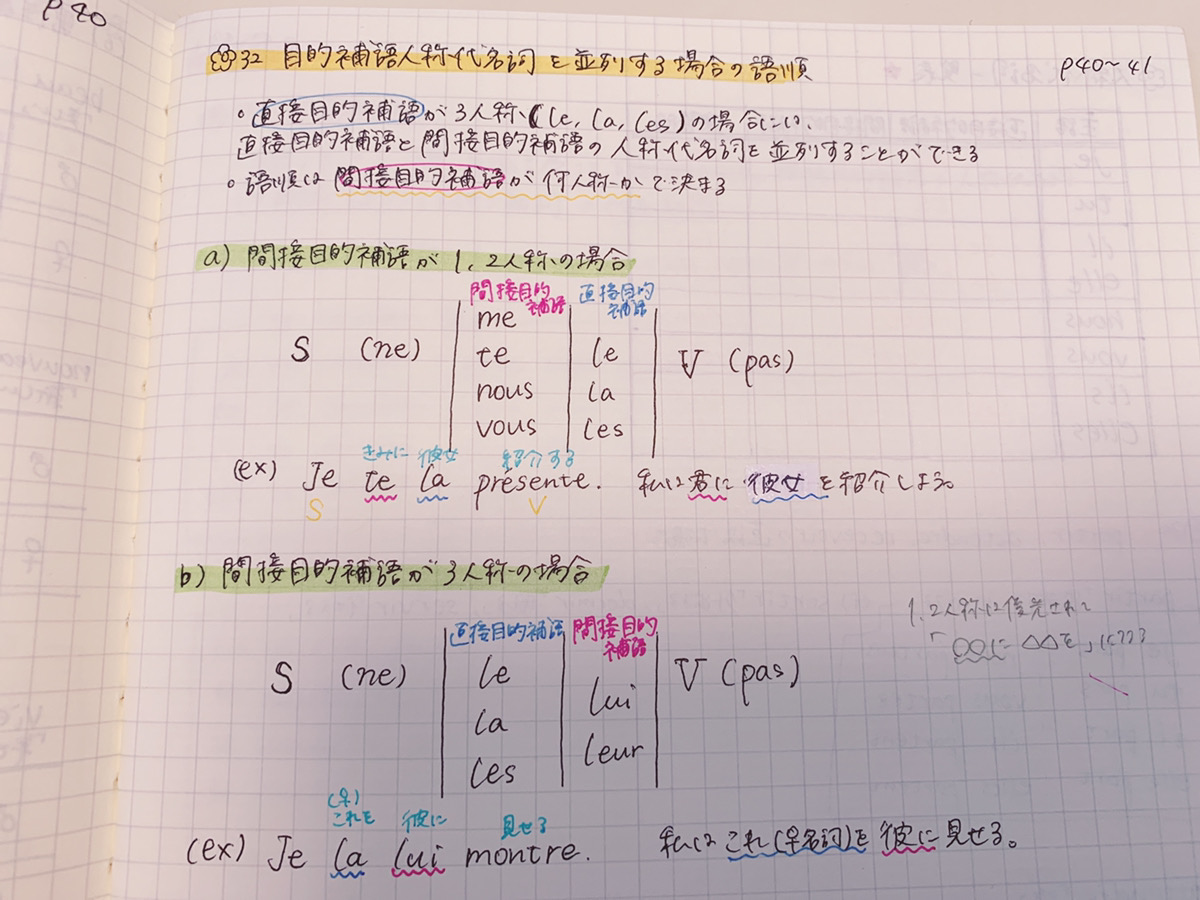 P40
32 目的補語人称代名詞を並列する場合の語順
P40～41
・直接目的補語が3人称(le, la, les)の場合に、
直接目的補語と間接目的補語の人称代名詞を並列することができる
・語順は間接目的補語が何人称かで決まる
a) 間接目的補語が1、2人称の場合
間接目的補語 直接目的補語
me
S (ne) te le V (pas)
nous la
vous les
きみに 彼女 紹介する
(ex) Je te la présente. 私は君に彼女を紹介しよう。
S V
b) 間接目的補語が3人称の場合
1、2人称は優先されて
「○○に△△を」になる
直接目的補語 間接目的補語
S (ne) le lui V (pas)
la leur
les
(女)
これを 彼に 見せる
(ex) Je la lui montre. 私はこれ(女名詞)を彼に見せる。